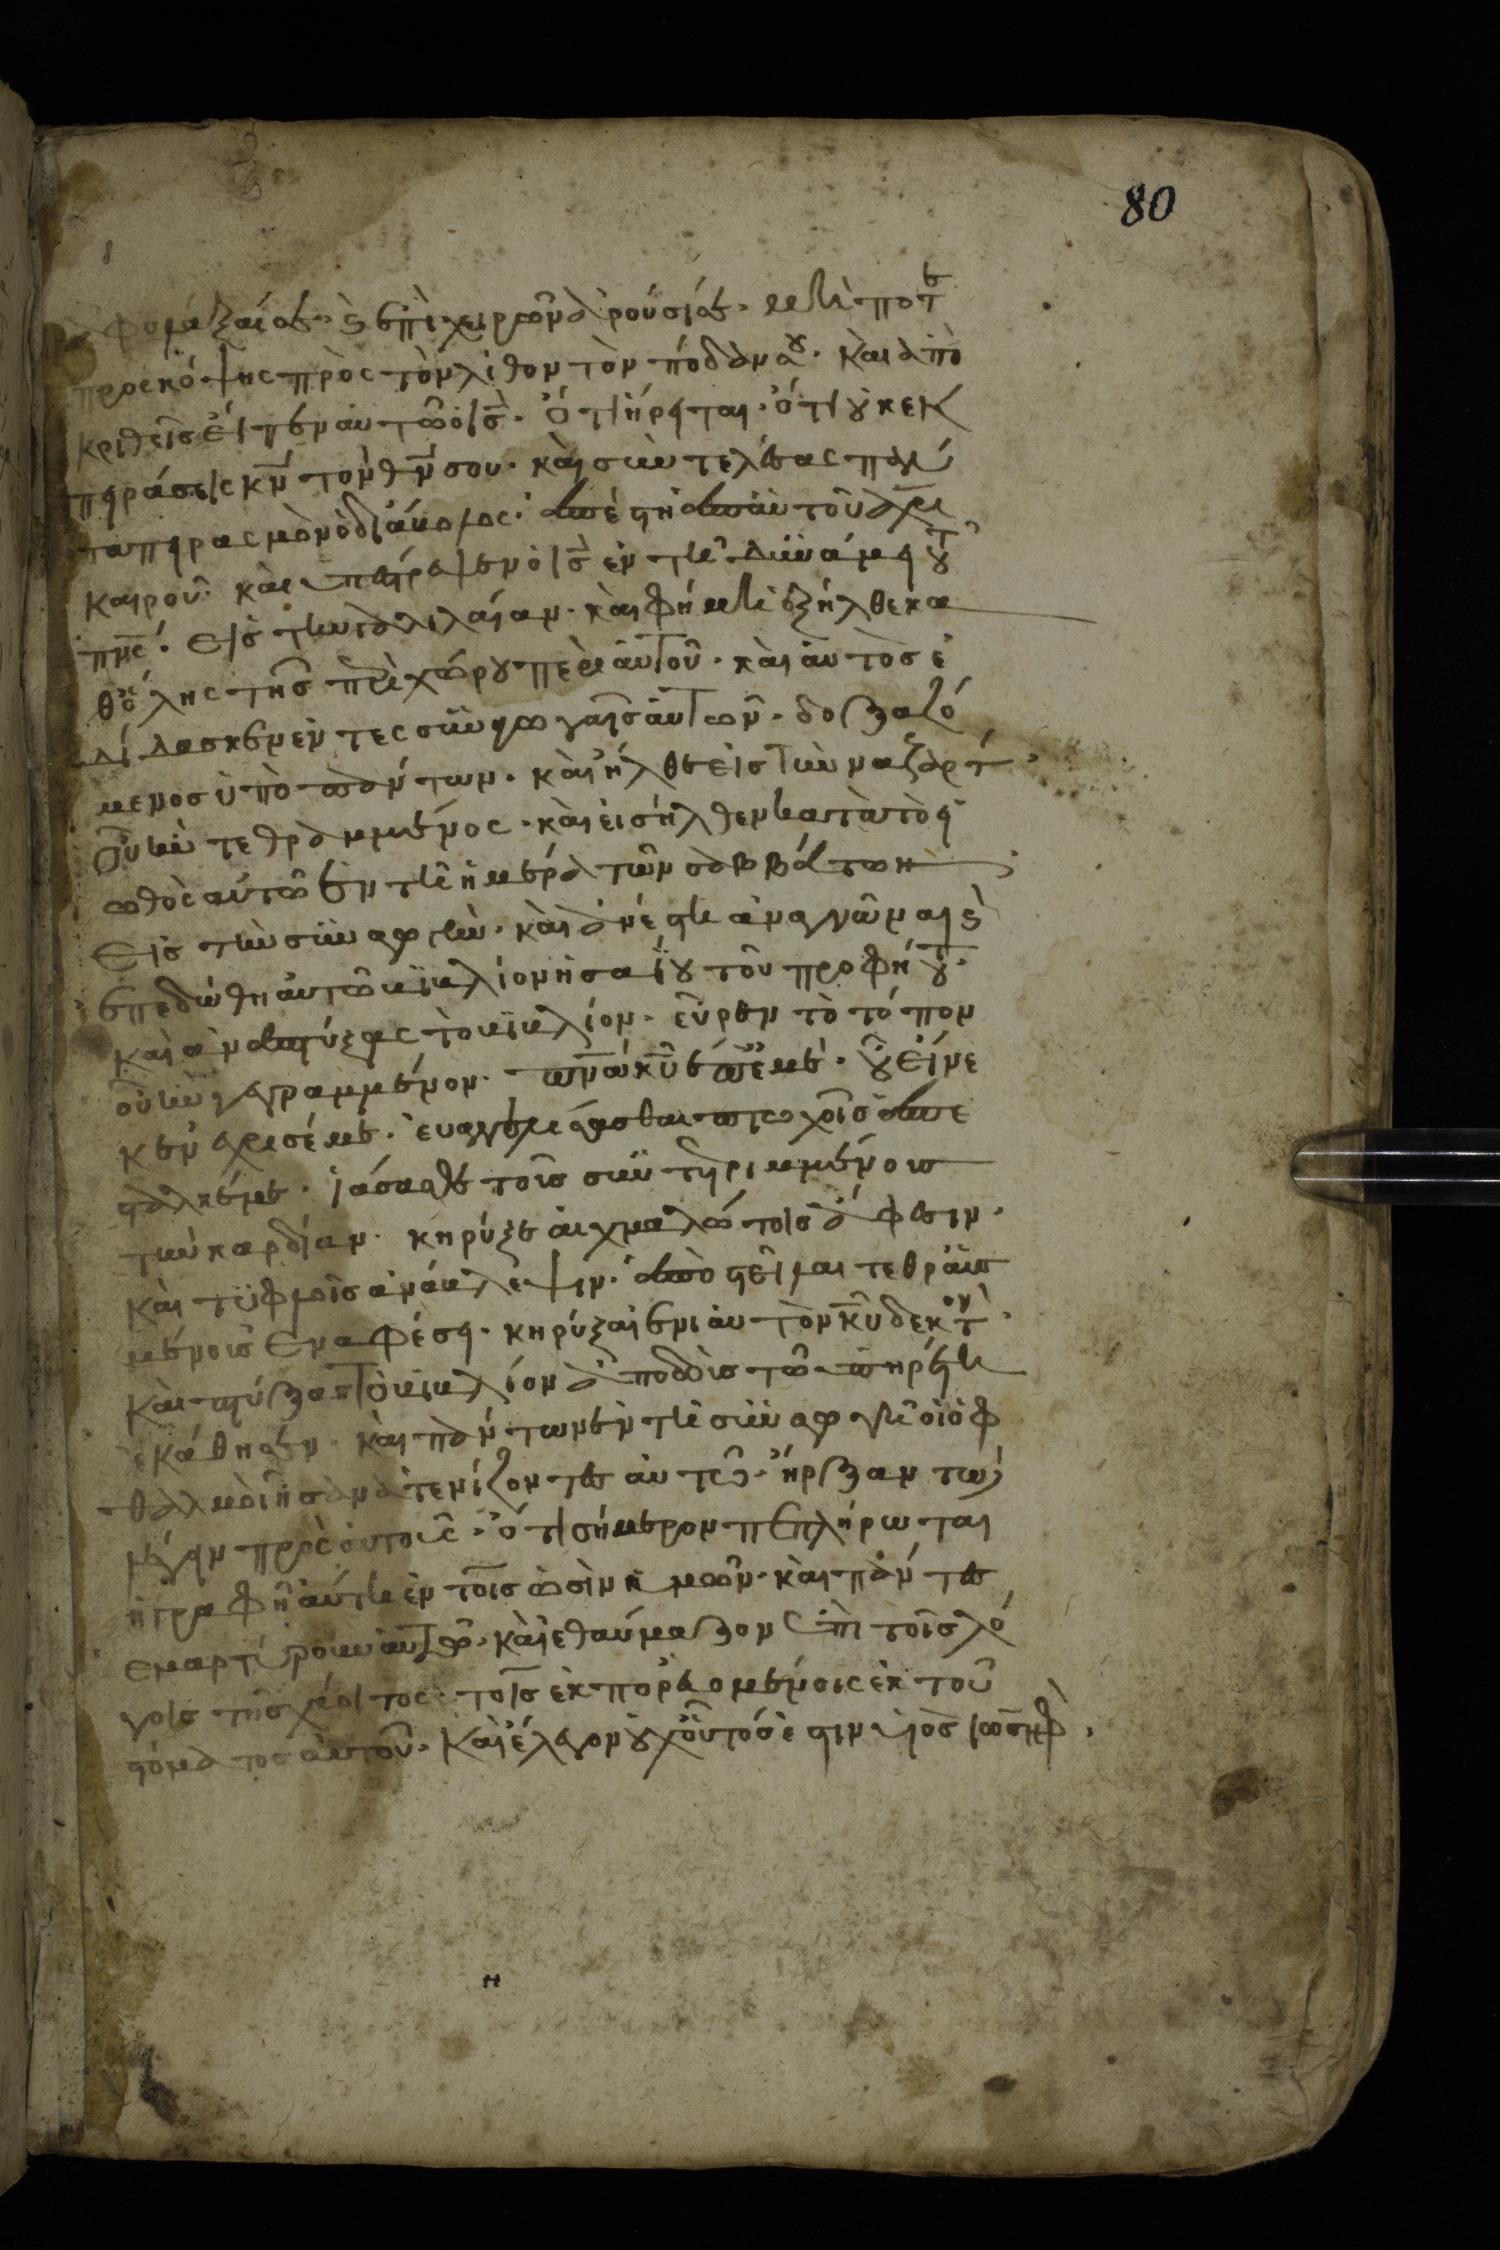 80
φυλάξαί σε· ϛ ἐπὶ χειρῶν ἀρούσί σε· μὴ ποτε
προσκόψης πρὸς τὸν λίθον τὸν πόδα σου· καὶ ἀπὸ
κριθεὶς εἶπεν αὐτῶ ὁ ις· ὅτι ἤρηται· ὅτι οὐκ ἐκ
πηράσεις κν τὸν θν σου· καὶ συντελέσας πάν
τα πηρασμὸν ὁ διάβολος· ἀπέστη ἀπ' αὐτοῦ ἄχρι
καιροῦ· καὶ ὑπέστρεψεν ὁ ις ἐν τῆ δυνάμη τοῦ
πνς· εἰς τὴν γαλιλαίαν· καὶ φήμη ἐξήλθε κα
θ' ὅλης τῆς περιχώρου περὶ αὐτοῦ· καὶ αὐτὸς ἐ
δίδασκεν ἐν τες συναγωγαῖς αὐτῶν· δοξαζό
μενος ὑπὸ πάντων· καὶ ἦλθε εἰς τὴν ναζαρέτ·
οὗ ἦν τεθραμμένος· καὶ εἰσῆλθεν κατὰ τὸ εἰ
ωθὸς αὐτῶ ἐν τῆ ἡμέρα τῶν σαββάτων
εἰς τὴν συναγωγὴν· καὶ ἀνέστη ἀναγνῶναι ϛ
ἐπεδώθη αὐτῶ βιβλίον ἠσαΐου τοῦ προφήτου·
καὶ ἀναπτύξας τὸ βιβλίον· εὗρεν τὸ τόπον
οὗ ἦν γεγραμμένον· πνα κυ ἐπ' ἐμὲ· οὗ εἵνε
κεν ἔχρισέ με· εὐαγγελίσασθαι πτωχοῖς ἀπέ
σταλκέ με· ἰάσασθε τοῖς συντηριμμένοις
τὴν καρδίαν· κηρύξε αἰχμαλώτοις ἄφεσιν·
καὶ τυφλοῖς ἀνάβλεψιν· ἀποστεῖλαι τεθραυσ
μένοις ἐν ἀφέση· κηρύξαι ἐνιαυτὸν κυ δεκτόν·
καὶ πτύξας τὸ βιβλίον ἀποδοὺς τῶ ὑπηρέτη
ἐκάθησεν· καὶ πάντων ἐν τῆ συναγωγῆ οἱ ὀφ
θαλμοὶ ἦσαν ἀτενίζοντες αὐτῶ· ἤρξαν τὼ
λέγην πρὸς αὐτοὺς· ὅτι σήμερον πεπλήρωται
ἡ γραφὴ αὕτη ἐν τοῖς ὠσὶν ἡμῶν· καὶ πάντες
ἐμαρτύρουν αὐτῶ· καὶ ἐθαύμαζον ἐπὶ τοῖς λό
γοις τῆς χάριτος· τοῖς ἐκπορευομένοις ἐκ τοῦ
στόματος αὐτοῦ· καὶ ἔλεγον οὐχ οὗτός ἐστιν υἱὸς ἰωσὴφ·
η